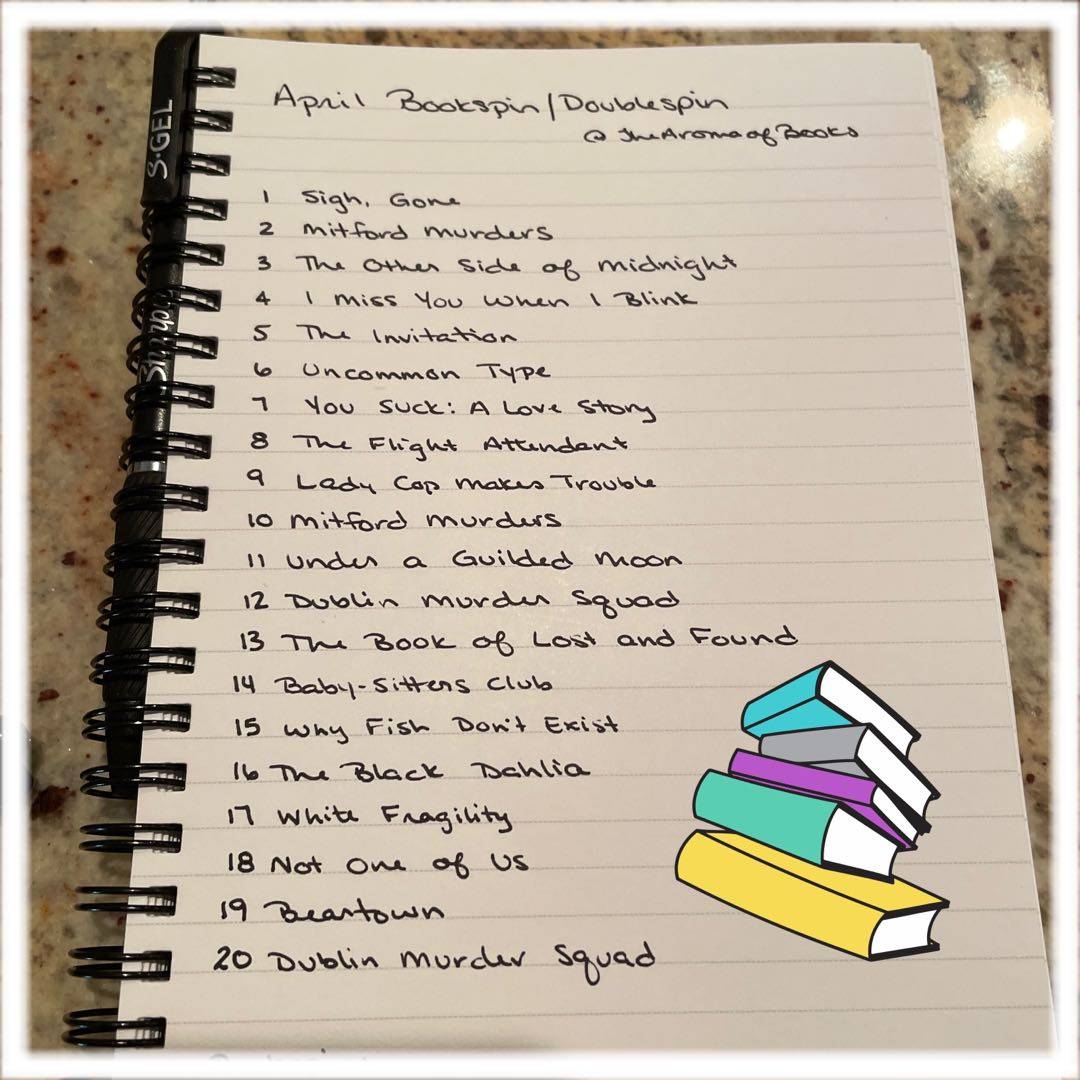 April Bookspin/Doublespin
@TheAromaofBooks
1 Sigh, Gone
2 Mitford Murders
3 The Other Side of Midnight
4 I Miss You When I Blink
5 The Invitation
6 Uncommon Type
7 You Suck: A Love Story
8 The Flight Attendant
9 Lady Cop Makes Trouble
10 Mitford Murders
11 Under a Guilded Moon
12 Dublin Murder Squad
13 The Book of Lost and Found
14 Baby-Sitters Club
15 Why Fish Don't Exist
16 The Black Dahlia
17 White Fragility
18 Not One of Us
19 Beartown
20 Dublin Murder Squad
S·GEL
Sharpie